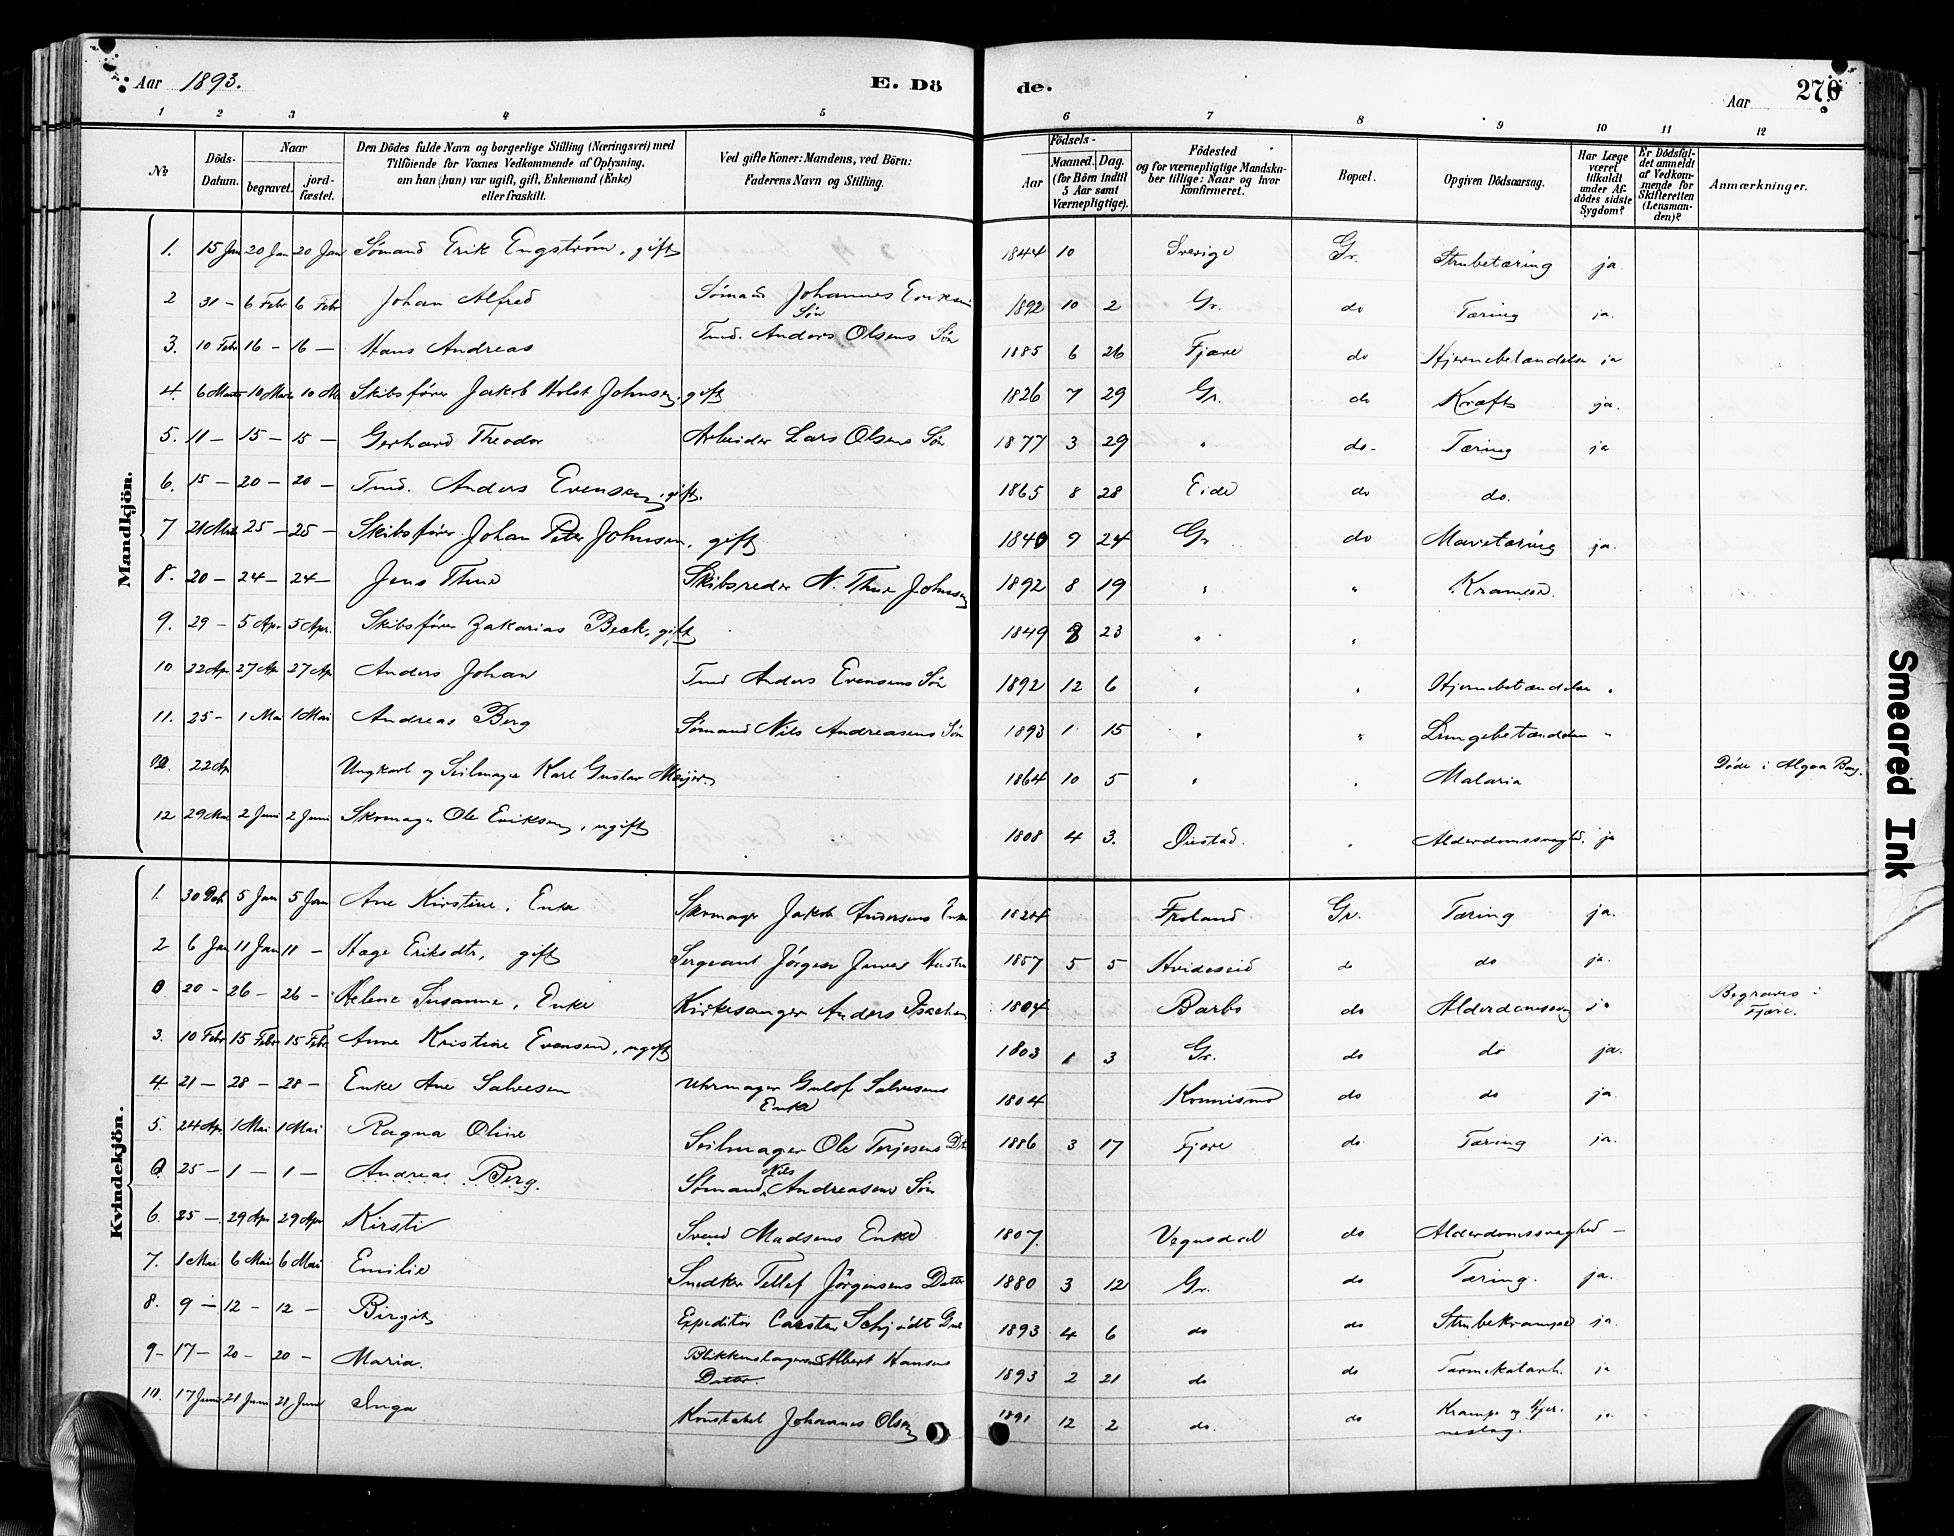 Aar 1893. E. Dö de. Aar 270
1 2 3 4 5 6 7 8 9 10 11 12
№ Döds-Datum. Naar begravet. jordfæstet. Den Dödes fulde Navn og borgerlige Stilling (Næringsvei) med Tilföiende for Voxnes Vedkommende af Oplysning, om han (hun) var ugift, gift, Enkemand (Enke) eller fraskilt. Ved gifte Koner: Mandens, ved Börn: Faderens Navn og Stilling. Födsels- Aar Maaned. Dag. (for Börn indtil 5 Aar samt Værnepligtige). Födested og for værnepligtige Mandskaber tillige: Naar og hvor konfirmeret. Bopæl. Opgiven Dödsaarsag. Har Læge været tilkaldt under Afdödes sidste Sygdom? Er Dödsfaldet anmeldt af Vedkommende for Skifteretten (Lensmanden)? Anmærkninger.
Mandkjön.
1. 15 Jan 20 Jan 20 Jan Sømand Erik Engstrøm, gift 1844 10 Sverige Gr. Strubetæring ja
2 31 – 6 Febr 6 Febr Johan Alfred Sømand Johannes Eriksen Søn 1892 10 2 Gr. do Tæring ja.
3. 10 Febr 16 – 16 – Hans Andreas Tmd. Anders Olsens Søn 1885 6 26 Fjære do Hjernebetændelse ja
4. 6 Marts 10 Marts 10 Ma Skibsfører Jakob Holst Johnsen, gift 1826 7 29 Gr. do Kræft ja.
5. 11 – 15 – 15 – Gerhard Theodor Arbeider Lars Olsens Søn 1877 3 29 " do – Tæring ja
6. 15 – 20 – 20 – Tmd. Anders Evensen, gift. 1865 8 28 Eide do do.
7 21 Mar 25 – 25 – Skibsfører Johan Peter Johnsen, gift 1840 9 24 Gr do Mavetæring ja.
8. 20 – 24 – 24 – Jens Thue Skibsreder N. Thue Johnsen 1892 8 19 " " Krampe.
9. 29 – 5 Apr. 5 Apr. Skibsfører Zakarias Beck, gift 1849 8 23 " "
10 22 Ap. 27 Ap 27 Ap Anders Johan Tmd Anders Evensens Søn 1892 12 6 " " Hjernebetændelse "
11. 25 – 1 Mai 1 Mai Andreas Berg Sømand Nils Andreasens Søn 1893 1 15 " " Lungebetændelse "
22 Ap Ungkarl og Seilmager Karl Gustav Meijer 1864 10 5 " " Malaria Døde i Algoa Bay.
12 29 Mai 2 Juni 2 Juni Skomager Ole Eriksen, ugift 1808 4 3. Øiestad. " Alderdomssvaghed. ja
Kvindekjön.
1. 30 5 Jan 5 Jan Ane Kirstine, Enke Skomager Jakob Andersens Enke 1824 Froland Gr. Tæring ja.
2 6 Jan 11 Jan 11 – Hæge Eriksdtr, gift Sergeant Jørgen Hustru 1857 5 5 Hvideseid do do ja.
0 20 – 26 – 26 – Helene Susanne, Enke Kirkesanger Anders Isachsen 1804 Barbo do Alderdomssvag ja Begraves i Fjære.
3. 10 Febr 15 Febr 15 Febr Anne Kristine Evensen, ugift 1803 1 3 Gr. do do ja.
4. 21 – 28 – 28 – Enke Ane Salvesen Uhrmager Salvesens Enke 1804 do do ja.
5. 24 Ap. 1 Mai 1 Mai Ragna Oline Seilmager Ole Terjesens Dtr 1886 3 17 Fjære do Tæring ja.
0 25 – 1 – 1 – Andreas Berg. Sømand Nils Andreasens Søn
6. 25 – 29 Apr 29 Apr Kirsti Svend Madsens Enke 1807. Vegusdal do Alderdomssvaghed –
7. 1 Mai 6 Mai 6 Mai Emilie Snedker Tellef Jørgensens Datter 1880 3 12 Gr. do Tæring. ja.
8. 9 – 12 – 12 – Birgit Expeditør Carsten Schjødt Dtr 1893 4 6 do do Strubekrampe ja.
9 – 17 – 20 – 20 – Maria. Blikkenslager Albert Hansens Datter. 1893 2 21 do do Tarmekatarh. ja
10. 17 Juni 21 Juni 21 Juni Inga Konstabel Johannes Olsen 1891 12 2 do. do Krampe og Hjerneslag. ja
Smeared Ink